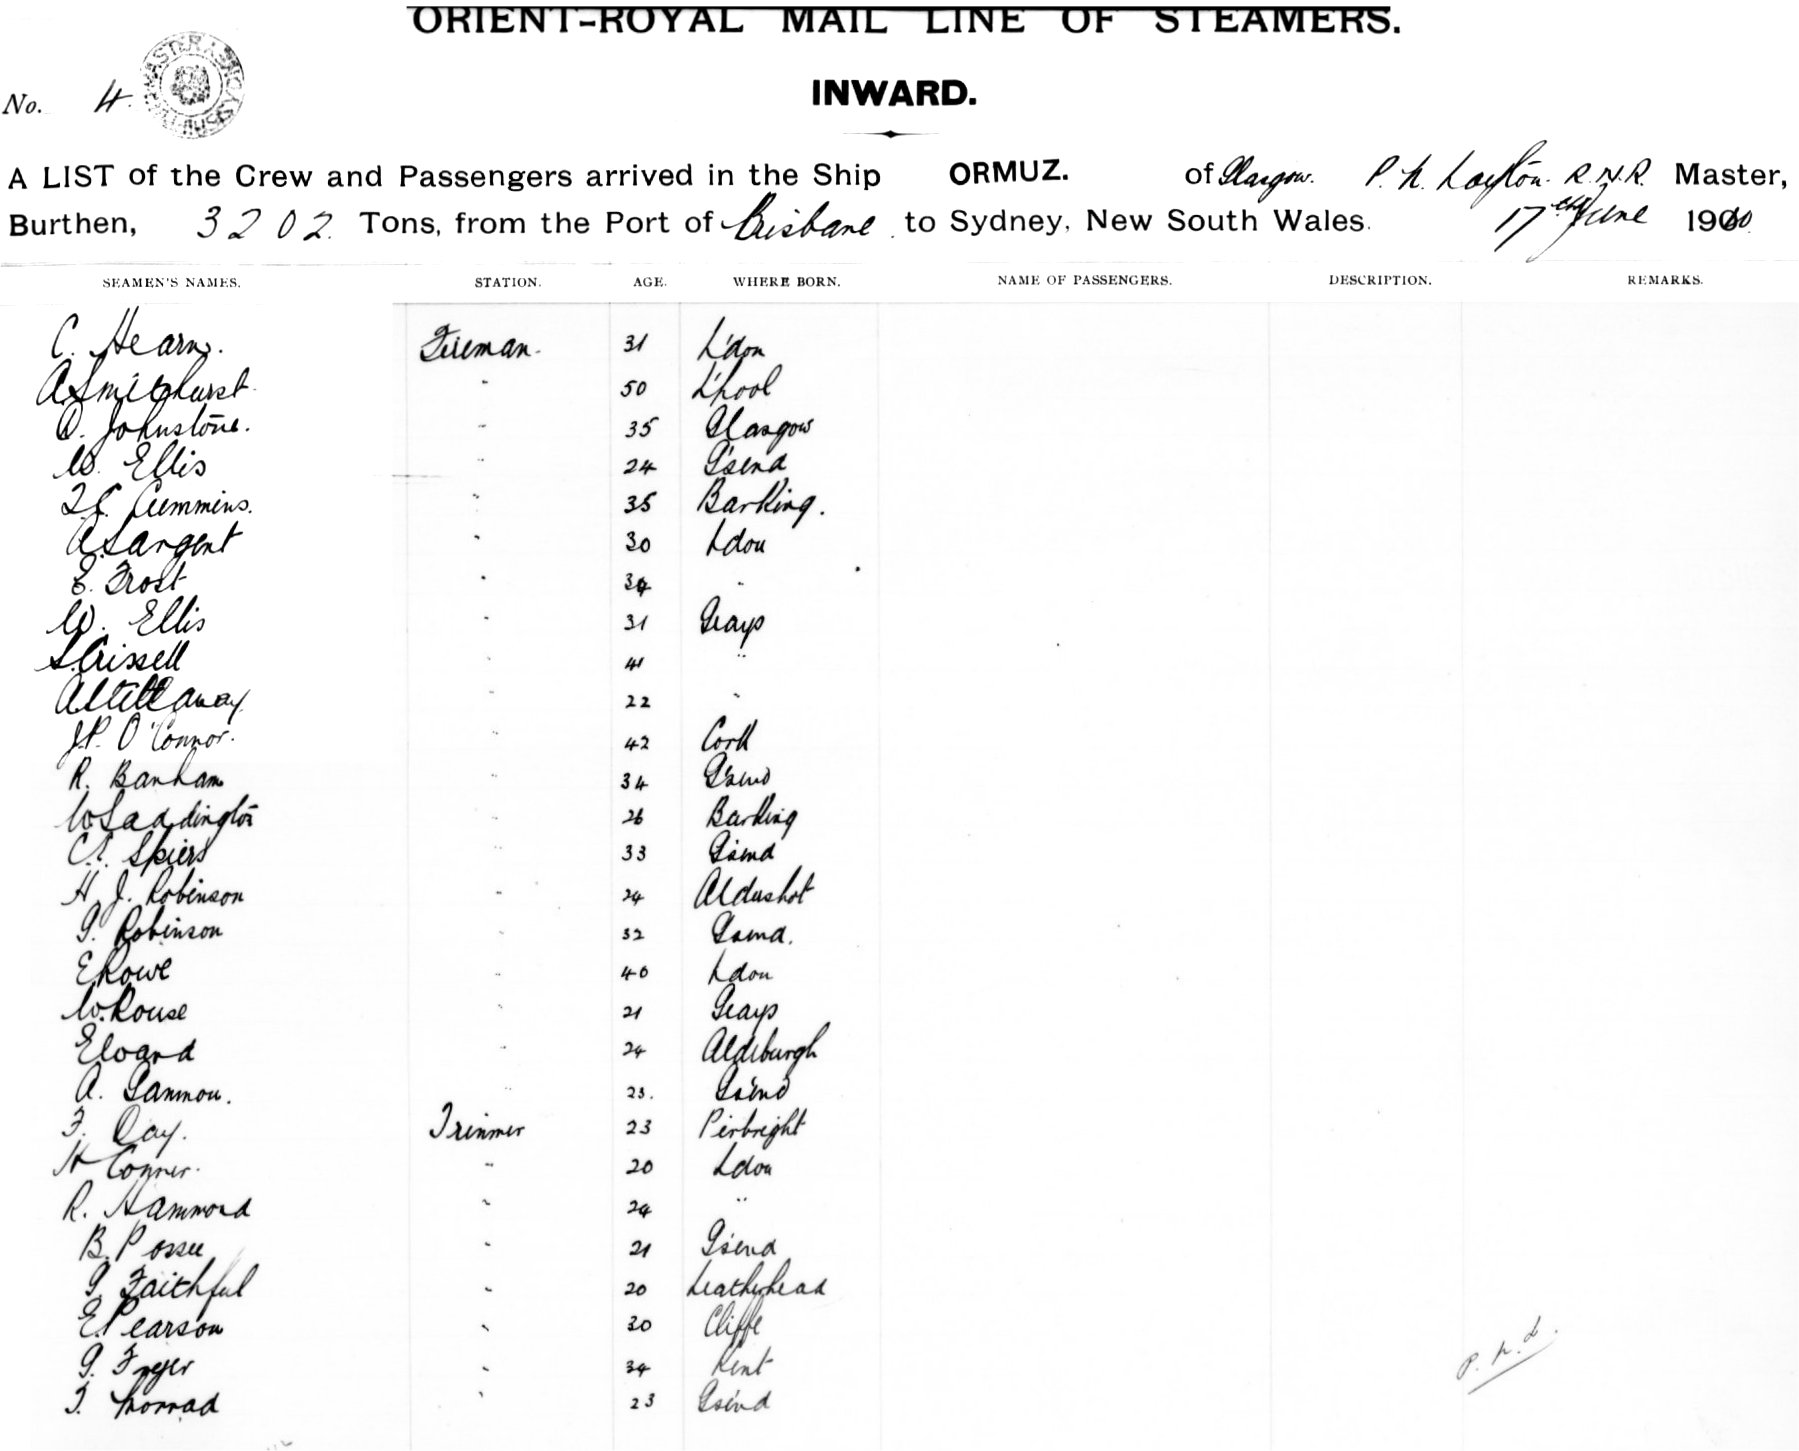 ORIENT-ROYAL MAIL LINE OF STEAMERS.
No. 4.
INWARD.
A LIST of the Crew and Passengers arrived in the Ship ORMUZ. of Glasgow. P. N. Layton. R.N.R. Master,
Burthen, 3202 Tons, from the Port of Brisbane to Sydney, New South Wales. 17th June 1900
SEAMEN'S NAMES. STATION. AGE. WHERE BORN. NAME OF PASSENGERS. DESCRIPTION. REMARKS.
C. Hearn. Fireman. 31 L'don
A Smithurst " 50 L'pool
D. Johnstone. " 35 Glasgow
W. Ellis " 24 G'send
Cummins. " 35 Barking.
A Sargent " 30 Ldon
E. Frost " 34 "
W. Ellis " 31 Grays
S. Grissell " 41 "
A Stillaway " 22 "
J.P. O'Connor. " 42 Cork
R. Banham " 34 G'send
W. Saddington " 26 Barking
Spiers " 33 G'send
H. J. Robinson " 24 Aldershot
G. Robinson " 32 Gsend.
E Rowe " 40 Ldon
W. Rouse " 21 Grays
E Ward " 24 Aldeburgh
A. Gammon. " 23. Gs'end
F. Day. Trimmer 23 Pirbright
H Conner. " 20 Ldon
R. Hammond " 24 "
B. Possee " 21 G'send
G. Faithful " 20 Leatherhead
E. Pearson " 30 Cliffe
G. Fryer " 34 Kent
T. " 23 Gsend
P. N. L.